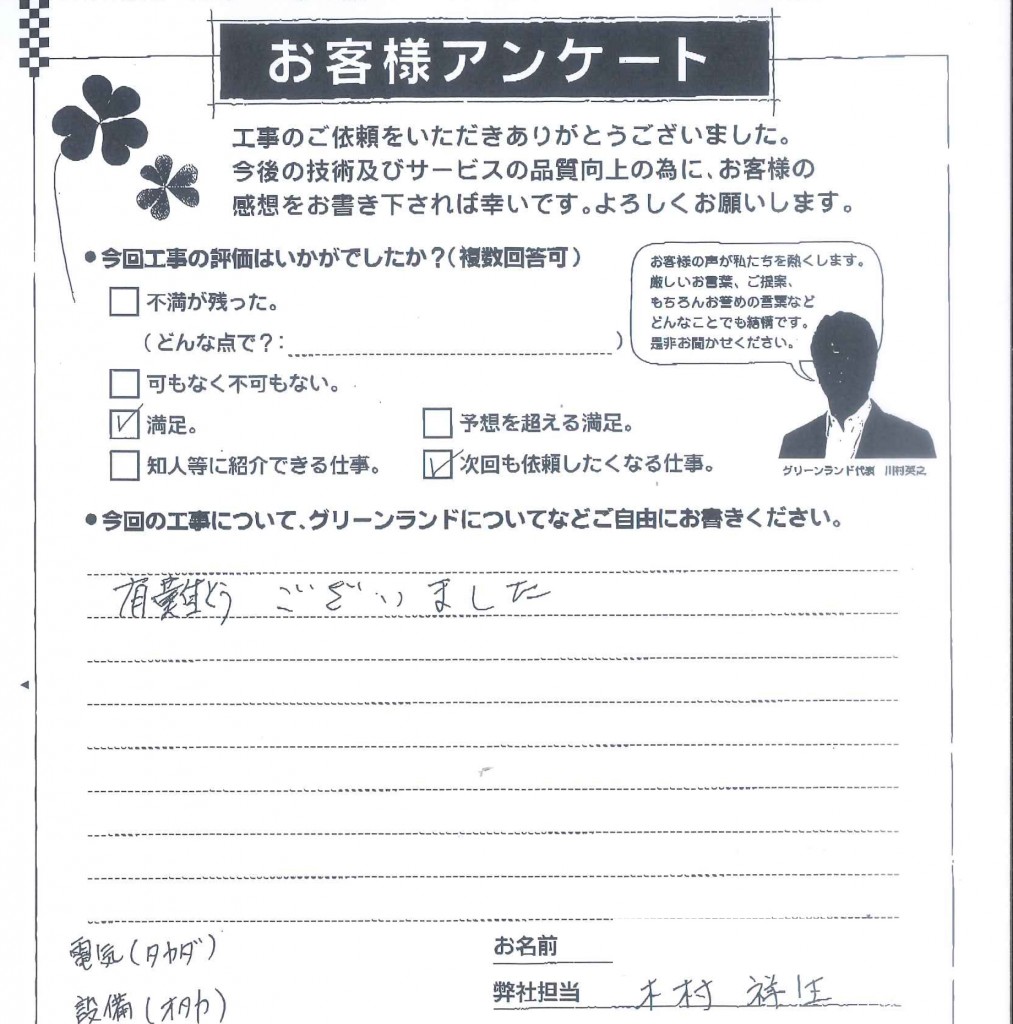 お客様アンケート
工事のご依頼をいただきありがとうございました。
今後の技術及びサービスの品質向上の為に、お客様の
感想をお書き下されば幸いです。よろしくお願いします。
●今回工事の評価はいかがでしたか?(複数回答可)
お客様の声が私たちを熱くします。
厳しいお言葉、ご提案、
もちろんお誉めの言葉など
どんなことでも結構です。
是非お聞かせください。
不満が残った。
(どんな点で?: )
可もなく不可もない。
満足。
予想を超える満足。
知人等に紹介できる仕事。
次回も依頼したくなる仕事。
グリーンランド代表 川村英之
●今回の工事について、グリーンランドについてなどご自由にお書きください。
有難とう ございました
電気(タカダ)
設備(オタカ)
お名前
弊社担当 木村 祥生